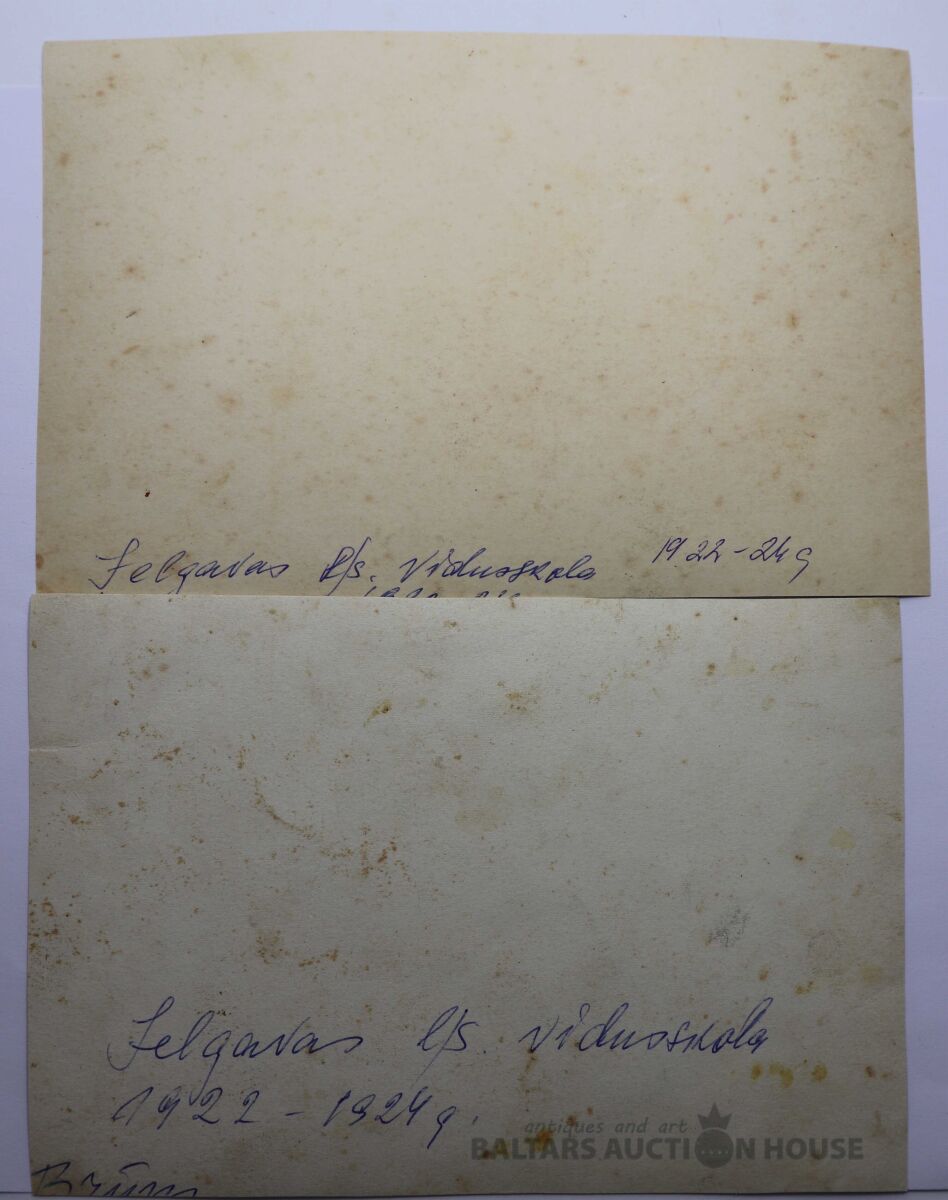 Jelgavas l/s. vidusskola 1922-24g
Jelgavas l/s. vidusskola
1922-1924g.
antiques and art
BALTARS AUCTION HOUSE